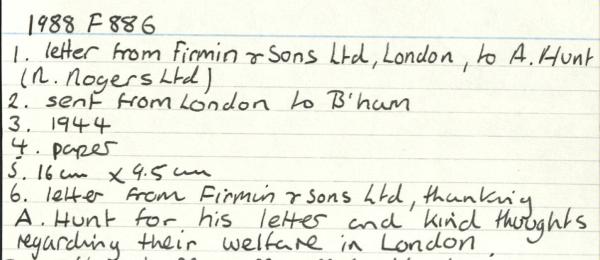 1988 F 886
1. letter from Firmin & Sons Ltd, London, to A. Hunt
(R. Rogers Ltd)
2. sent from London to B'ham
3. 1944
4. paper
5. 16 cm x 9.5 cm
6. letter from Firmin & Sons Ltd, thanking
A. Hunt for his letter and kind thoughts
regarding their welfare in London.